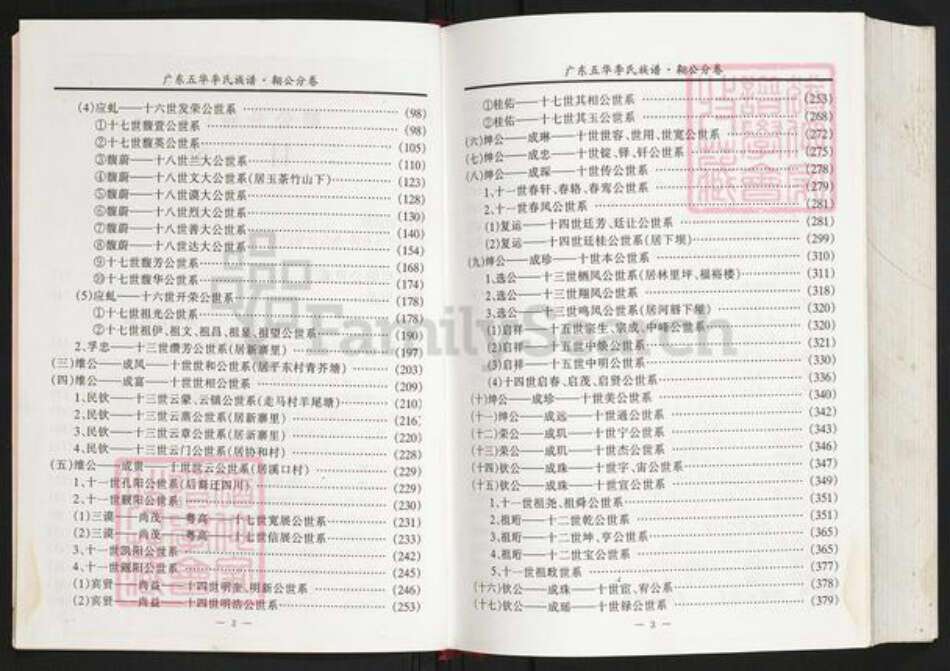 广东五华李氏族谱·翱公分卷
(4)应虬——十六世发荣公世系 (98)
①十七世馥萱公世系 (98)
②十七世馥英公世系 (105)
③馥蔚——十八世兰大公世系 (110)
④馥蔚——十八世文大公世系(居玉茶竹山下) (123)
⑤馥蔚——十八世谟大公世系 (128)
⑥馥蔚——十八世烈大公世系 (130)
⑦馥蔚——十八世善大公世系 (140)
⑧馥蔚——十八世达大公世系 (154)
⑨十七世馥芳公世系 (168)
⑩十七世馥华公世系 (174)
(5)应虬——十六世开荣公世系 (178)
①十七世祖光公世系 (178)
②十七世祖伊、祖文、祖昌、祖显、祖望公世系 (190)
2、孚忠——十三世瓒芳公世系(居新寨里) (197)
(三)维公——成凤——十世世和公世系(居平东村青芥塘) (203)
(四)维公——成富——十世世相公世系 (209)
1、民钦——十三世云蒙、云镇公世系(走马村羊尾塘) (210)
2、民钦——十三世云蒸公世系(居新寨里) (216)
3、民钦——十三世云章公世系(居新寨里) (220)
4、民钦——十三世云门公世系(居协和村) (228)
(五)维公——成贵——十世公世系(居溪口村) (229)
1、十一世孔阳公世系(后裔迁四川) (229)
2、十一世觐阳公世系 (230)
(1)三谟——尚茂——粤高——十七世宽展公世系 (231)
(2)三谟——尚茂——粤高——十七世信展公世系 (233)
3、十一世凯阳公世系 (242)
4、十一世阳公世系 (245)
(1)宾贤——尚益——十四世明奎、明新公世系 (246)
(2)宾贤——尚益——十四世明浩公世系 (253)
— 2 —
广东五华李氏族谱·翱公分卷
①桂佑——十七世其相公世系 (253)
②桂佑——十七世其玉公世系 (268)
(六)绅公——成琳——十世世容、世用、世宽公世系 (272)
(七)绅公——成忠——十世锭、铎、钎公世系 (275)
(八)绅公——成琛——十世传公世系 (278)
1、十一世春轩、春辂、春鸾公世系 (279)
2、十一世春凤公世系 (281)
(1)复运——十四世廷芳、廷让公世系 (281)
(2)复运——十四世廷桂公世系(居下坝) (299)
(九)绅公——成珍——十世本公世系 (310)
1、选公——十三世栖凤公世系(居林里坪、福裕楼) (311)
2、选公——十三世翔凤公世系 (318)
3、选公——十三世鸣凤公世系(居河唇下楼) (320)
(1)启祥——十五世宗生、宗成、中峰公世系 (320)
(2)启祥——十五世中焕公世系 (321)
(3)启祥——十五世中明公世系 (330)
(4)十四世启春、启茂、启贤公世系 (336)
(十)绅公——成珍——十世美公世系 (340)
(十一)绅公——成远——十世通公世系 (342)
(十二)荣公——成玑——十世宁公世系 (343)
(十三)荣公——成玑——十世杰公世系 (346)
(十四)钦公——成珠——十世宇、宙公世系 (347)
(十五)钦公——成珠——十世宣公世系 (351)
1、十一世祖尧、祖舜公世系 (351)
2、祖珩——十二世乾公世系 (351)
3、祖珩——十二世坤、亨公世系 (365)
4、祖珩——十二世宝公世系 (365)
5、十一世祖畋世系 (377)
(十六)钦公——成珠——十世宦、宥公系 (378)
(十七)钦公——成瑶——十世禄公世系 (379)
— 3 —
FamilySearch